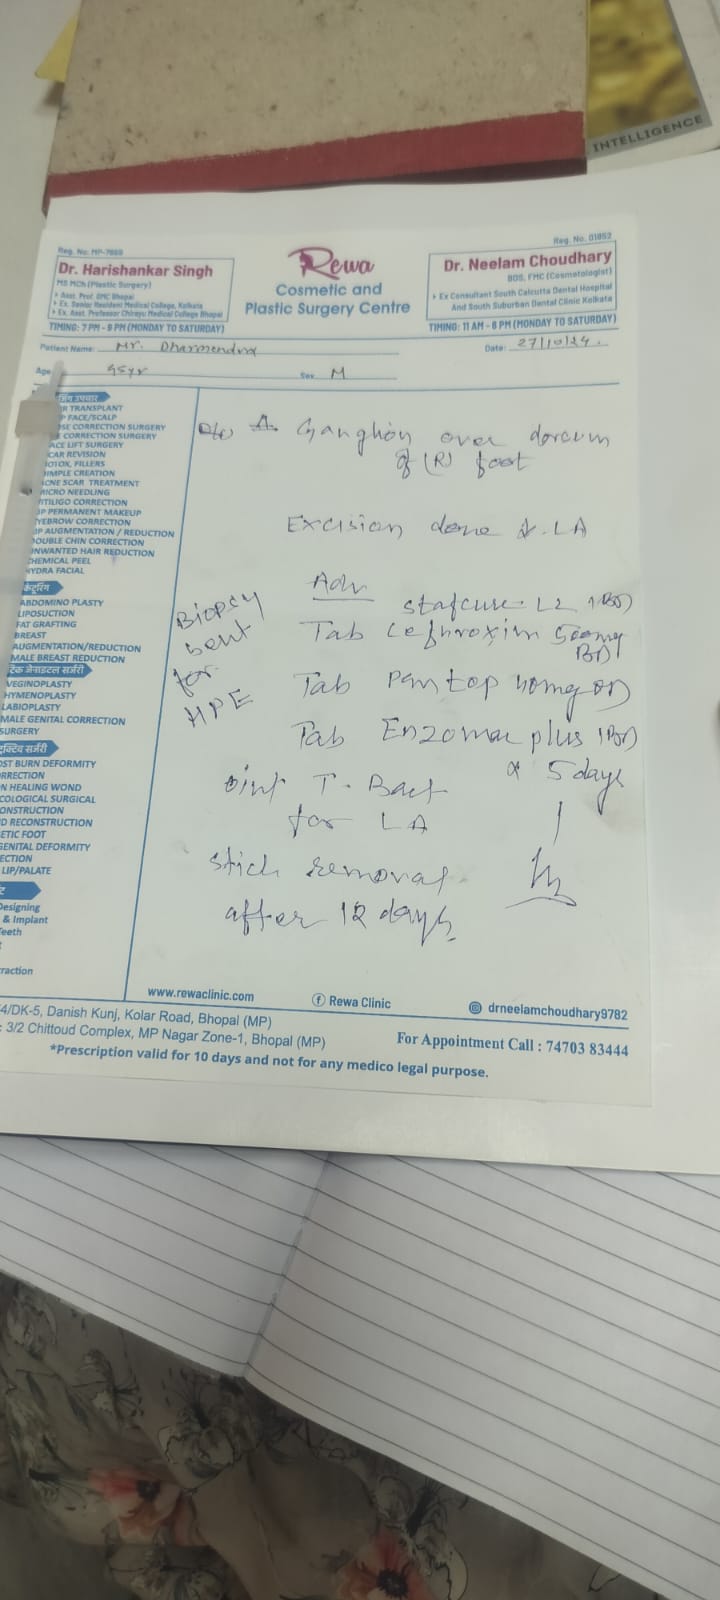 INTELLIGENCE
Reg. No: MP-7869
Dr. Harishankar Singh
MS MCh (Plastic Surgery)
Asst. Prof. GMC Bhopal
Ex. Senior Resident Medical College, Kolkata
Ex. Asst. Professor Chirayu Medical College Bhopal
TIMING: 7 PM - 9 PM (MONDAY TO SATURDAY)
Rewa
Cosmetic and
Plastic Surgery Centre
Reg. No. 01652
Dr. Neelam Choudhary
BDS, FMC (Cosmetologist)
Ex Consultant South Calcutta Dental Hospital
And South Suburban Dental Clinic Kolkata
TIMING: 11 AM - 6 PM (MONDAY TO SATURDAY)
Patient Name: Mr. Dharmendra
Date: 27/10/24.
Age 45yr Sex M
उपचार
R TRANSPLANT
P FACE/SCALP
SE CORRECTION SURGERY
E CORRECTION SURGERY
ACE LIFT SURGERY
CAR REVISION
OTOX, FILLERS
IMPLE CREATION
CNE SCAR TREATMENT
ICRO NEEDLING
ITILIGO CORRECTION
P PERMANENT MAKEUP
YEBROW CORRECTION
IP AUGMENTATION / REDUCTION
OUBLE CHIN CORRECTION
NWANTED HAIR REDUCTION
HEMICAL PEEL
YDRA FACIAL
ABDOMINO PLASTY
LIPOSUCTION
FAT GRAFTING
BREAST
AUGMENTATION/REDUCTION
MALE BREAST REDUCTION
टिक जेनाइटल सर्जरी
VEGINOPLASTY
HYMENOPLASTY
LABIOPLASTY
MALE GENITAL CORRECTION
SURGERY
क्टिव सर्जरी
OST BURN DEFORMITY
RRECTION
N HEALING WOND
COLOGICAL SURGICAL
ONSTRUCTION
D RECONSTRUCTION
ETIC FOOT
GENITAL DEFORMITY
ECTION
LIP/PALATE
Designing
& Implant
Teeth
raction
Ganglion over dorsum
of (R) foot
Excision done LA
Adv
Biopsy
sent
for
HPE
stafcure LZ 1BD
Tab Cefuroxim 500mg
BD
Tab Pantop 40mg OD
Tab Enzomac plus 1BD
x 5 days
oint T-Bact
for LA
stich removal
after 12 days
www.rewaclinic.com
Rewa Clinic
drneelamchoudhary9782
4/DK-5, Danish Kunj, Kolar Road, Bhopal (MP)
: 3/2 Chittoud Complex, MP Nagar Zone-1, Bhopal (MP)
For Appointment Call : 74703 83444
*Prescription valid for 10 days and not for any medico legal purpose.